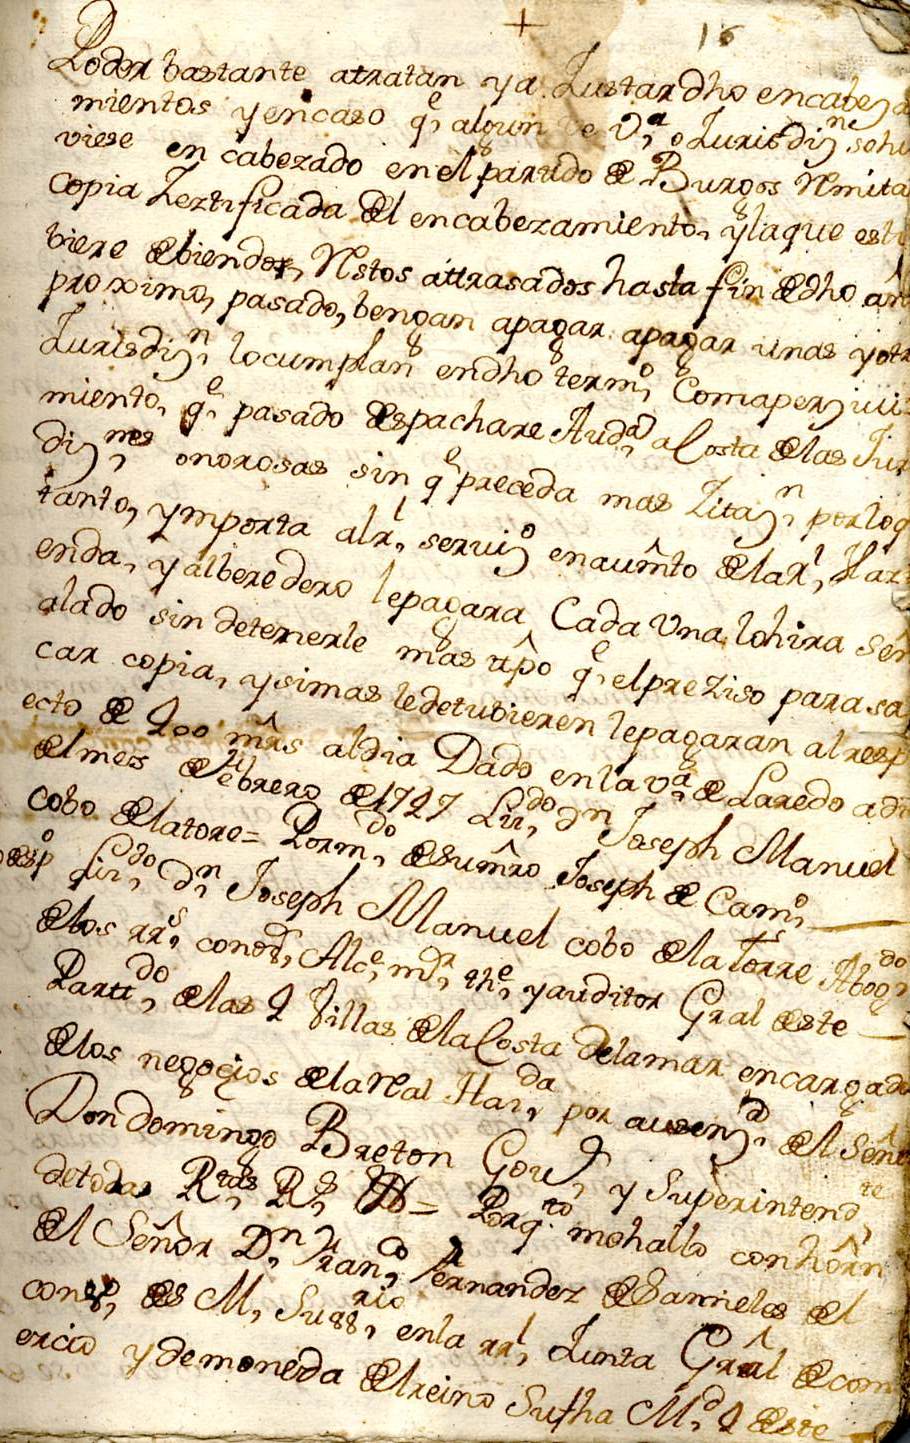 + 16
Poder bastante atratan y a Justar dho encabeza
mientos y encaso q.e algun de V.a o Jurisdiz.n sehu
viese en cabezado enel partido de Burgos Remita
copia Zertificada del encabezamiento, y laque estu
biere debiendo, Restos attrasados hasta fin de dho añ
proximo, pasado, bengan apagar apagar unas y otr
Jurisdiz.n, locumplan endho term.o, Comaperz
miento, q.e pasado despachare Aud.a a Costa de las Jur
diz.nes onorosas sin q.e preceda mas Zitaz.n, porloq
tanto, ymporta al r.l servi.o enaumto de la R.l, Haz
enda, y alberedero lepagara Cada Una, lohira señ
alado sin detenerle mas tpo q.e, elpreziso para sa
car copia, y simas le detubieren lepagaran al resp
ecto de 400 mrs aldia Dado enla v.a de Laredo a d
del mes de Febrero de 1727 Liz.do d.n Joseph Manuel
cobo de latore = Porm.do de sumro Joseph de Cam.o,
desp.o Liz.do D.n Joseph Manuel cobo de la Torre Abog.do
delos rr.s consej, Alc.e, m.r, the.e y auditor Gral deste
Partido, delas 4 Villas de la Costa delamar encargado
delos negoçios de la Real Haz.da, por ausenz.a del Señ
Don domingo Breton Gov.r, y Superintend.te
detodas R.tas R.s = Porq.to mehallo con horn
del Señor D.n Fran.co Fernandez de Samieles del
cons.o, de S M, Su ss.rio, enla rr.l Junta Gral de com
ercio y de moneda del reino Sufha M.d 4 deste